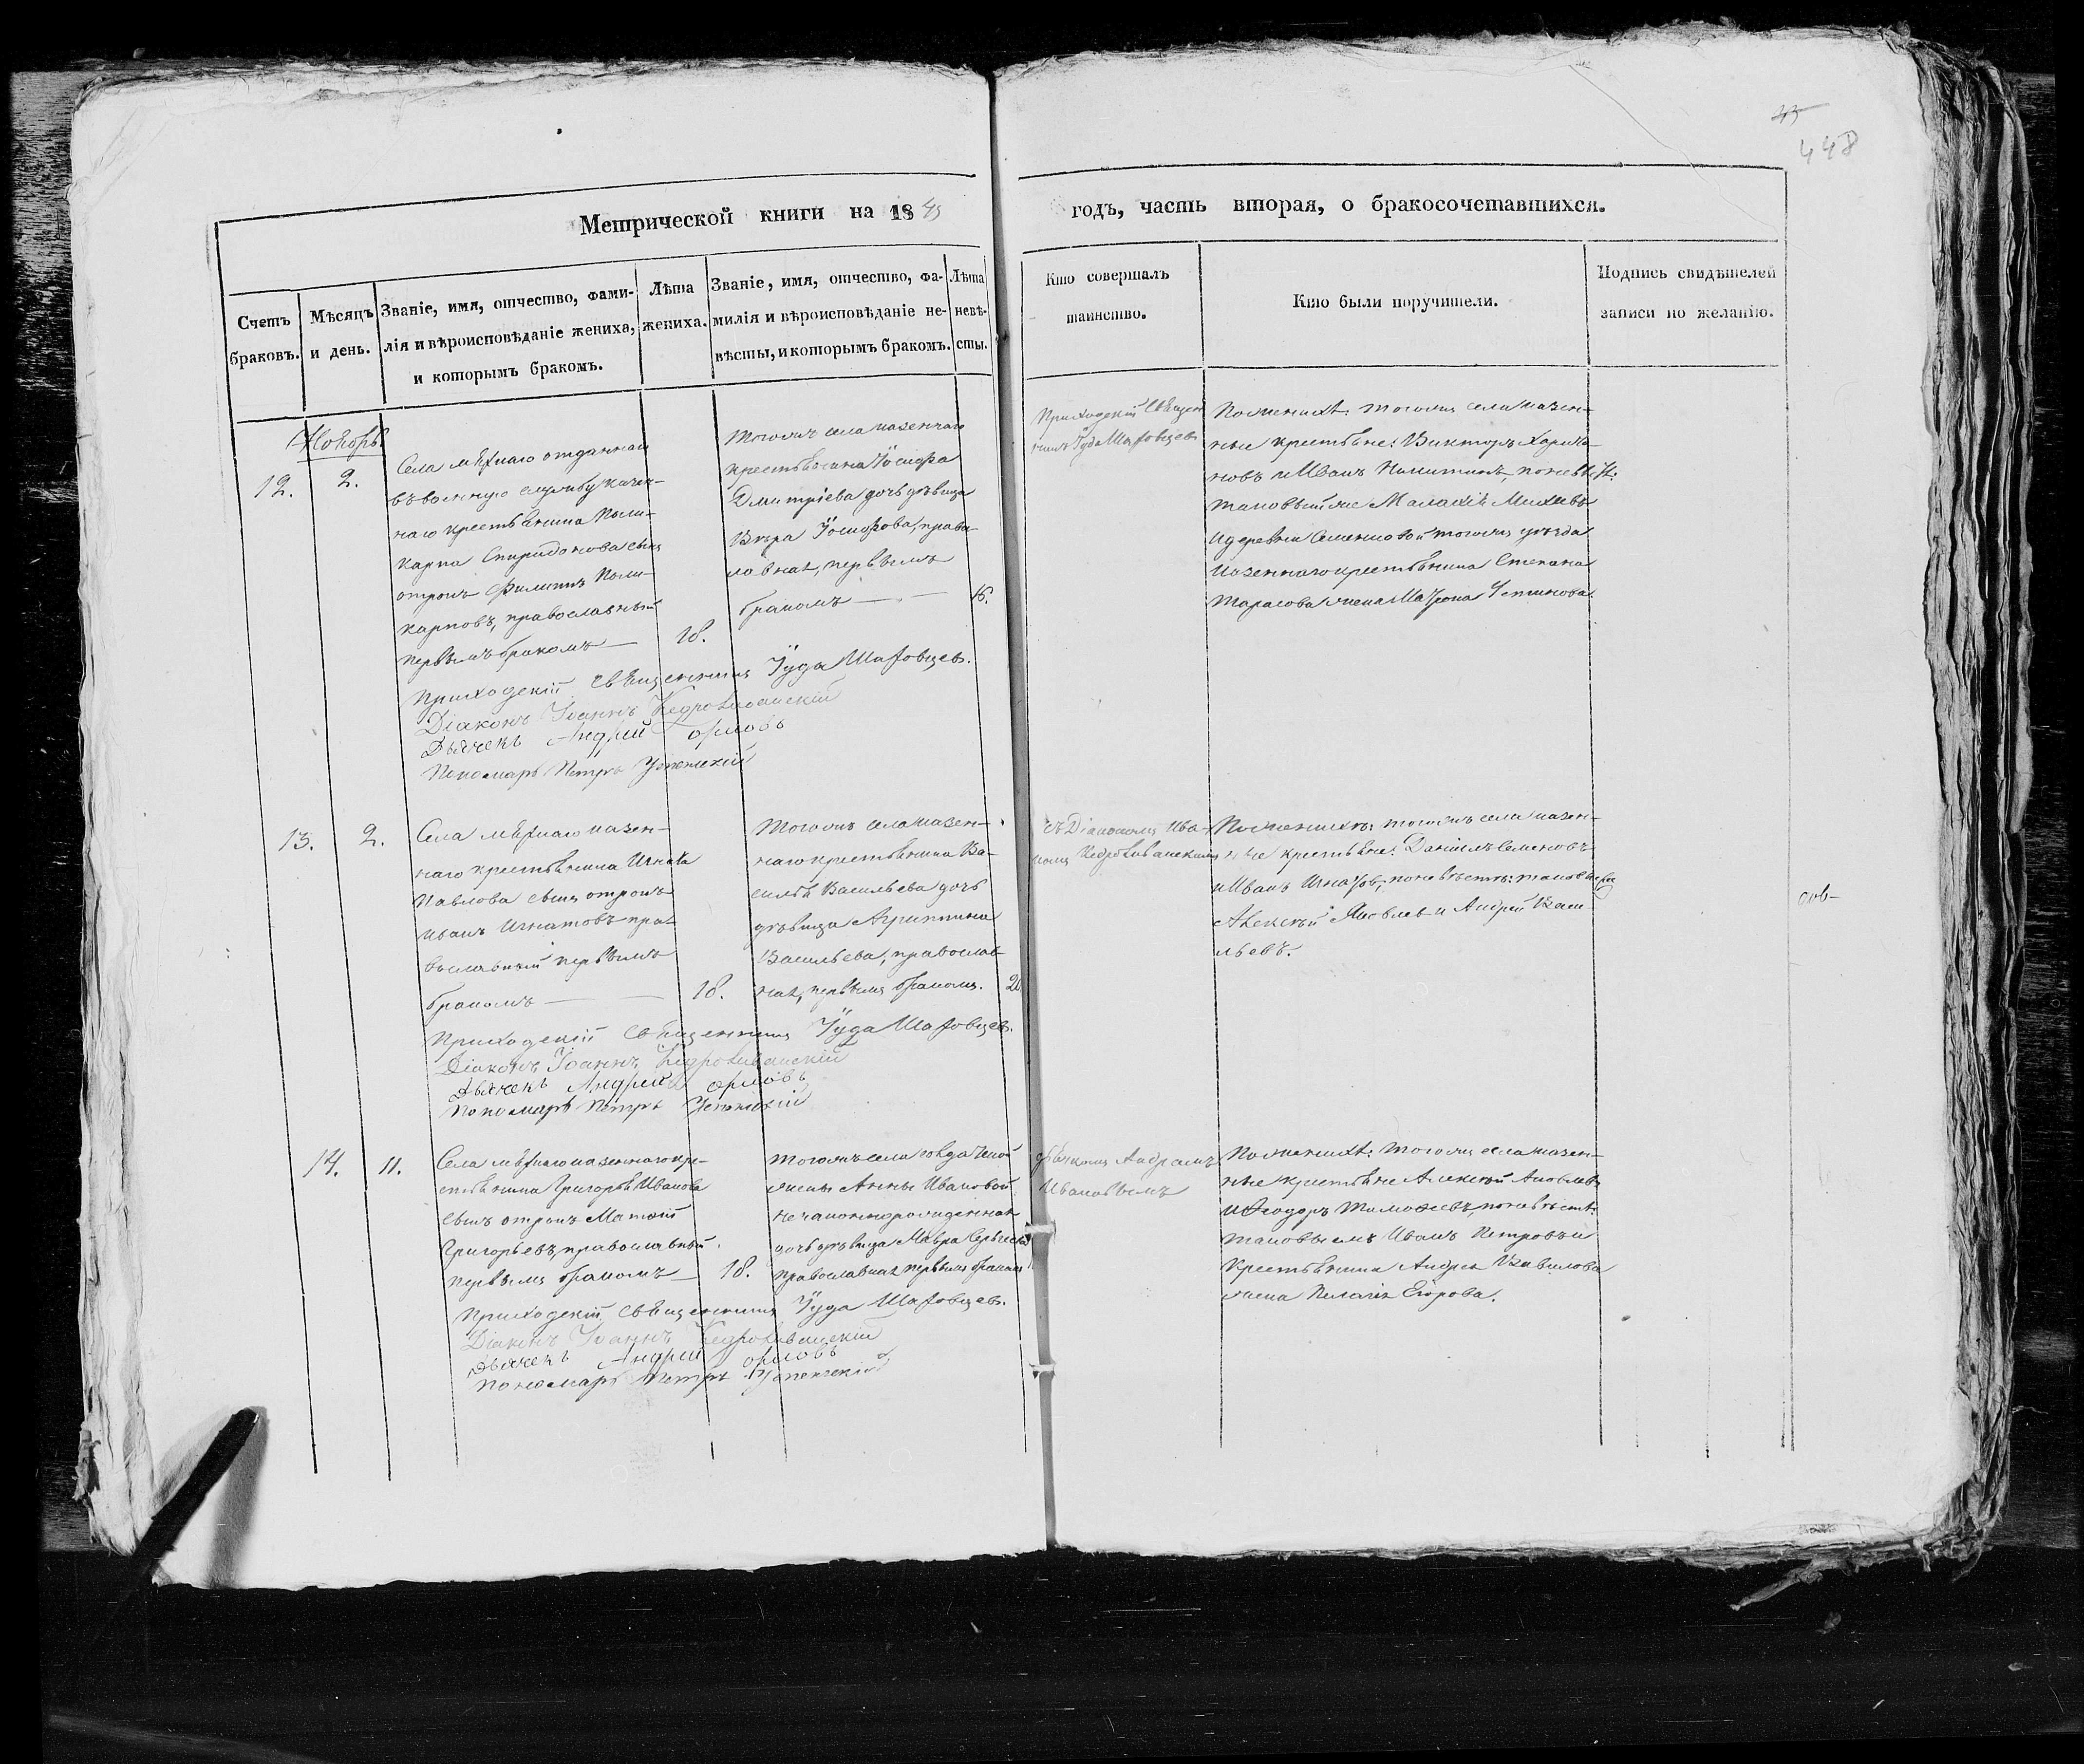 448
Метрической книги на 1845
годъ, часть вторая, о бракосочетавшихся.
Счетъ
браковъ.
Мѣсяцъ
и день.
Званіе, имя, отчество, фами-
лія и вѣроисповѣданіе жениха,
и которымъ бракомъ.
Лѣта
жениха.
Званіе, имя, отчество, фа-
милія и вѣроисповѣданіе не-
вѣсты, и которымъ бракомъ.
Лѣта
невѣ-
сты.
Кто совершалъ
таинство.
Кто были поручители.
Подпись свидѣтелей
записи по желанію.
Ноябрь
12.
2.
Села отданнаго
въ военную службу казен-
наго крестьянина Поли-
карпа Спиридонова сынъ
отрокъ Филиппъ Поли-
карповъ, православный
первымъ бракомъ
18.
Тогожъ села казеннаго
крестьянина Іосифа
Дмитріева дочь дѣвица
Вѣра Іосифова, право-
славная, первымъ
бракомъ
16.
Приходскій Священ
никъ Іуда
По женихѣ: тогожъ села казен-
ные крестьяне: Викторъ
новъ и Иванъ Никитинъ, по невѣстѣ:
таковый же Малахій Михѣевъ
и деревни Семеновой тогожъ уѣзда
казеннаго крестьянина Степана
Тарасова жена Матрона Устинова
Приходскій Священникъ Іуда
Діаконъ Іоаннъ
Дьячекъ Андрей Орловъ
Пономарь Петръ Успенскій
13.
2.
Села казен-
наго крестьянина Игната
Павлова сынъ отрокъ
Иванъ Игнатовъ пра-
вославный первымъ
бракомъ
18.
Тогожъ села казен-
наго крестьянина Ва-
силья Васильева дочь
дѣвица Агрипина
Васильева, православ-
ная, первымъ бракомъ.
20
съ Діакономъ Ива-
номъ
По женихѣ: тогожъ села казен-
ные крестьяне: Даніилъ Семеновъ
и Иванъ Игнатов, по невѣстѣ: таковые же
Алексѣй Яковлев и Андрей Васи-
льевъ.
Приходскій Священникъ Іуда
Діаконъ Іоаннъ
Дьячекъ Андрей Орловъ
Пономарь Петръ Успенскій
14.
11.
Села казеннаго кре-
стьянина Григорья Иванова
сынъ отрокъ Матвій
Григорьевъ, православный
первымъ бракомъ
18.
Тогожъ села солдатской
жены Анны Ивановой
незаконнорожденная
дочь дѣвица Мавра
православная первымъ бракомъ
дьячкомъ Андреемъ
Ивановымъ
По женихѣ: тогожъ села казен-
ные крестьяне Алексѣй Яковлевъ
и Ѳеодоръ Тимофеевъ, по невѣстѣ:
таковымъ Иванъ Петровъ и
крестьянина Андрея Вавилова
жена Пелагія Егорова.
Приходскій Священникъ Іуда
Діаконъ Іоаннъ
Дьячекъ Андрей Орловъ
Пономарь Петръ Успенскій